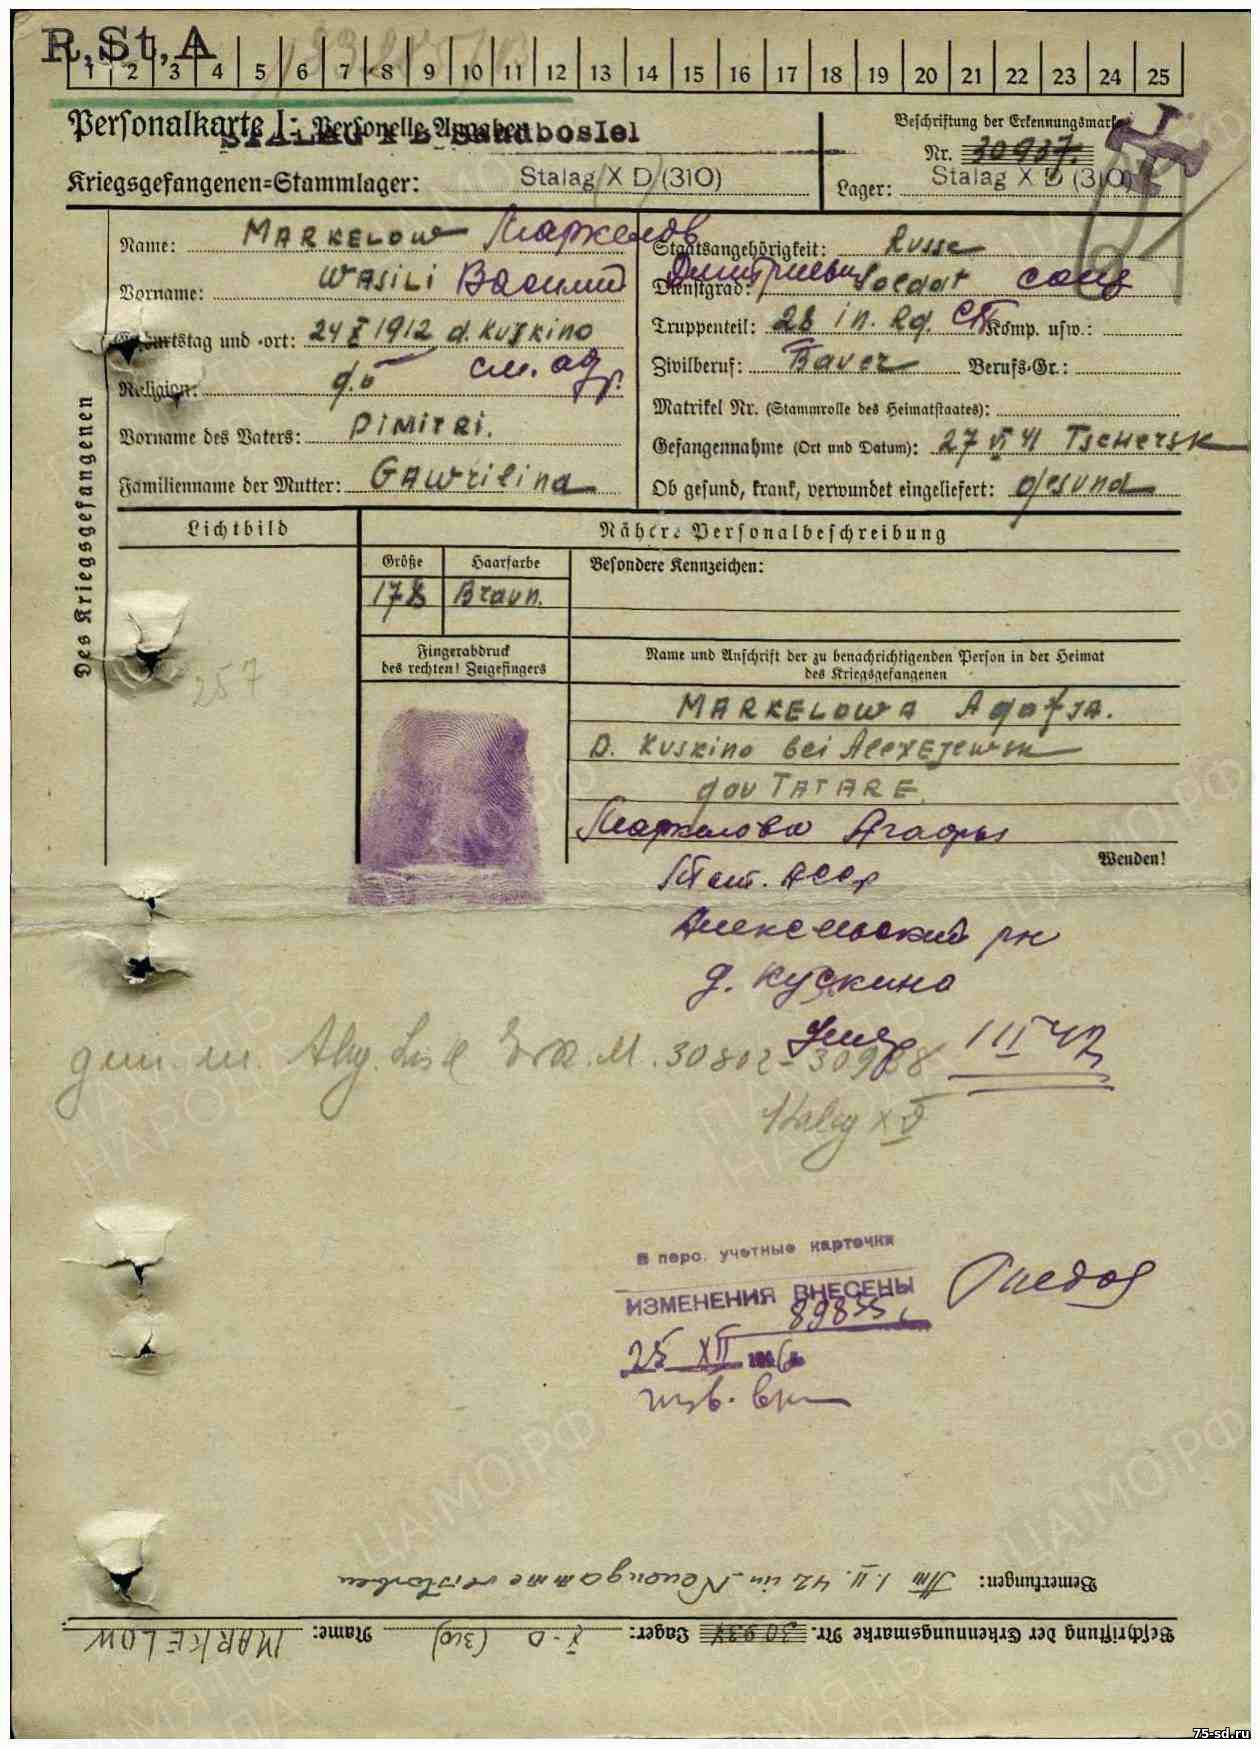 R.St.A
1 2 3 4 5 6 7 8 9 10 11 12 13 14 15 16 17 18 19 20 21 22 23 24 25
Personalkarte I: Personelle Angaben
STALAG X B Sandbostel
Kriegsgefangenen=Stammlager: Stalag X D (310)
Beschriftung der Erkennungsmarke
Nr. 30937.
Lager: Stalag X D (310)
Des Kriegsgefangenen
Name: MARKELOW Маркелов
Vorname: WASILI Василий Дмитриевич
Geburtstag und -ort: 24 X 1912 d. Kuskino
Religion: см. адр.
Vorname des Vaters: DIMITRI.
Familienname der Mutter: GAWRILINA
Staatsangehörigkeit: Russe
Dienstgrad: Soldat солд
Truppenteil: 28 in. Rg. СП Komp. usw.:
Zivilberuf: Bauer Berufs-Gr.:
Matrikel Nr. (Stammrolle des Heimatstaates):
Gefangennahme (Ort und Datum): 27 VI 41 TSCHERSK
Ob gesund, krank, verwundet eingeliefert: gesund
Lichtbild
Nähere Personalbeschreibung
Größe Haarfarbe Besondere Kennzeichen:
178 Braun.
Fingerabdruck
des rechten! Zeigefingers
Name und Anschrift der zu benachrichtigenden Person in der Heimat
des Kriegsgefangenen
MARKELOWA AGAFJA.
D. Kuskino bei AlexEJewsk
gou TATARE.
257
Маркелова Агафья
Wenden!
Тат. АССР
Алексеевский рн
д. Кускина
Умер 1 II 42
30802-30988
Stalag X D
В перс. учетные карточки
ИЗМЕНЕНИЯ ВНЕСЕНЫ
89855
25 XII
Bemerkungen: Am 1. II. 42 in Neuengamme verstorben
Beschriftung der Erkennungsmarke Nr. 30937 Lager: X-D (310) Name: MARKELOW
ПАМЯТЬ НАРОДА
ЦАМО.РФ
75-sd.ru